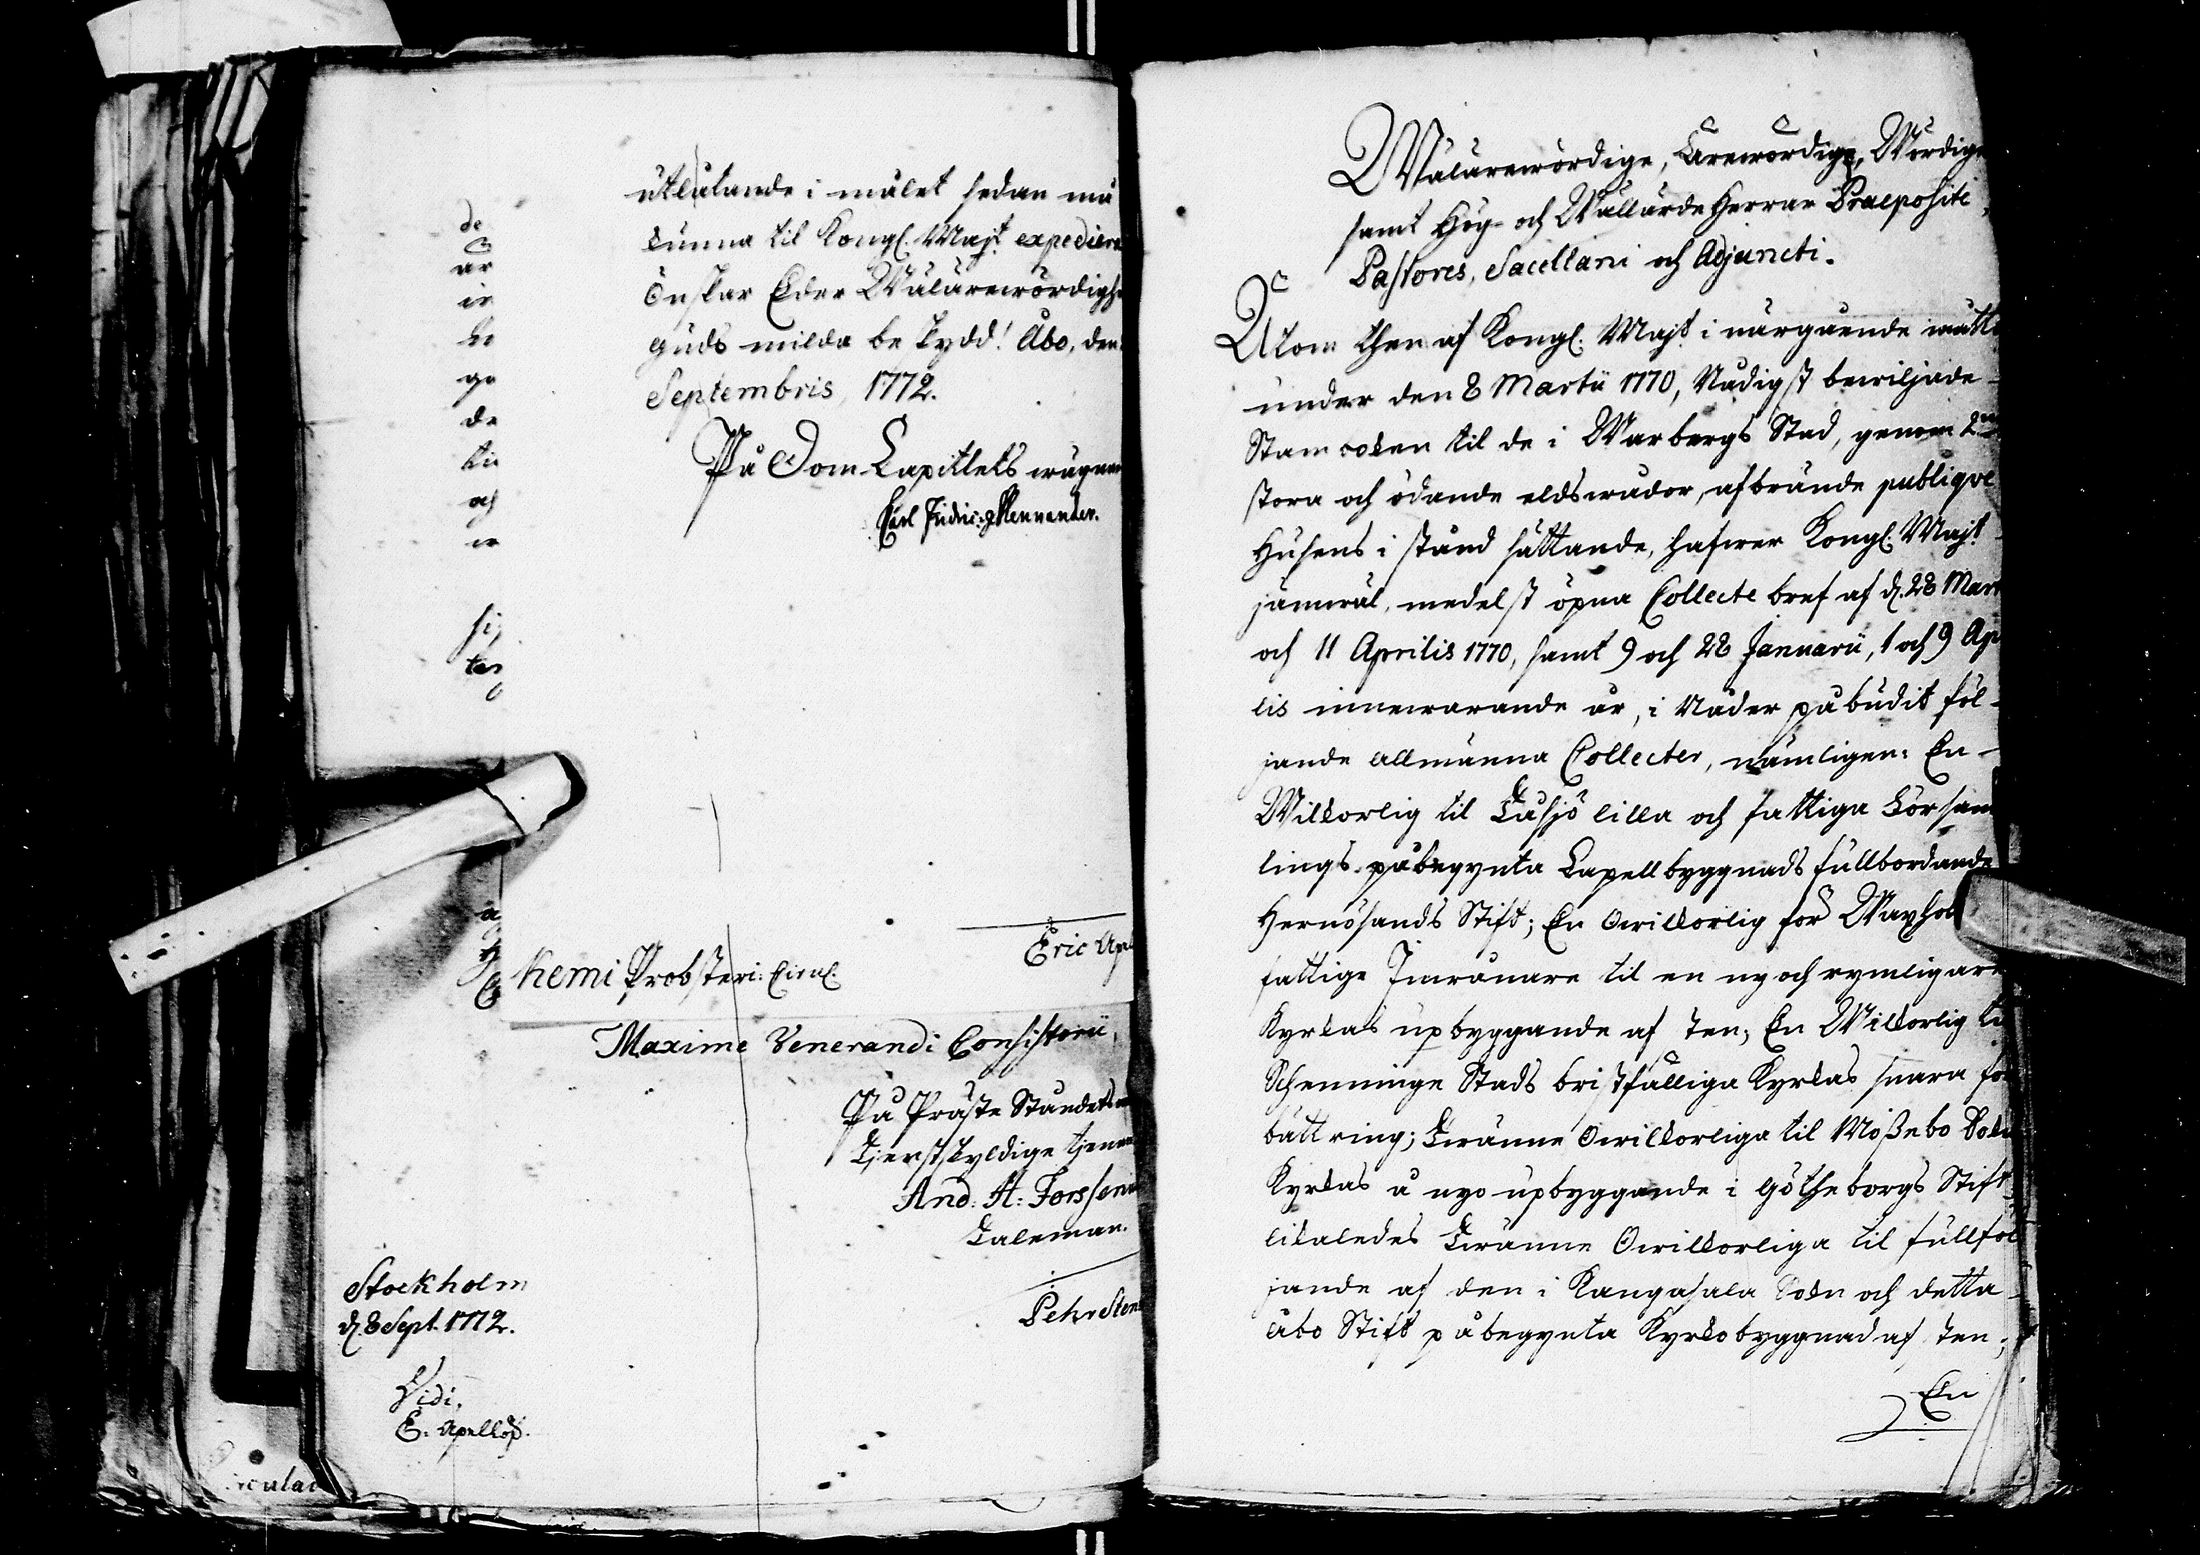 utlåtande i målet sedan må
kunna til Kongl. Majt expediera
Önskar Eder Wälärewördigh
Guds milda beskydd! Åbo, den
Septembris, 1772.
På Dom Capitlets wägnar
Carl Fredric Mennander.
de
är
ie
ge
de
til
och
Eric
Kemi Probsteri: Circul.
Maxime Venerandi Consistorii,
På Präste Ståndets
tjenstskyldige tjenare
And: H: Forssenius
Taleman.
Stockholm
d. 8 Sept. 1772.
Pehr Sten
Vidi,
E. Apelloff.
Wälärewördige, Ärewördige, Wördige
samt Hög- och Wällärde Herrar Praepositi,
Pastores, Sacellani och Adjuncti.
Utom then af Kongl. Majt i närgående
under den 8 Martii 1770, Nådigst bewiljade
Stamboken til de i Warbergs Stad, genom 2ne
stora och ödande eldswådor, afbrände publiqve
Husens i stånd sättande, hafwer Kongl. Majt
jämwäl, medelst öpna Collecte bref af d. 28 Mart
och 11 Aprilis 1770, samt 9 och 28 Januarii, 1 och 9 Apri
lis innewarande år, i Nåder påbudit föl-
jande allmänna Collecter, nämligen: En
Wilkorlig til Tåsjö lilla och fattiga Försam
lings påbegynta Capellbyggnads fullbordande
Hernösands Stift; En Owilkorlig för Waxhol
fattige Inwånare til en ny och rymligare
Kyrkas upbyggande af Sten; En Wilkorlig til
Schenninge Stads bristfälliga Kyrkas snara för
bättring; Twänne Owilkorliga til Mossebo Sokn
Kyrkas å nyo upbyggande i Götheborgs Stift,
likaledes Twänne Owilkorliga til fullföl
jande af den i Kangasala Sokn och detta
Åbo Stift påbegynta Kyrkobyggnad af Sten;
En